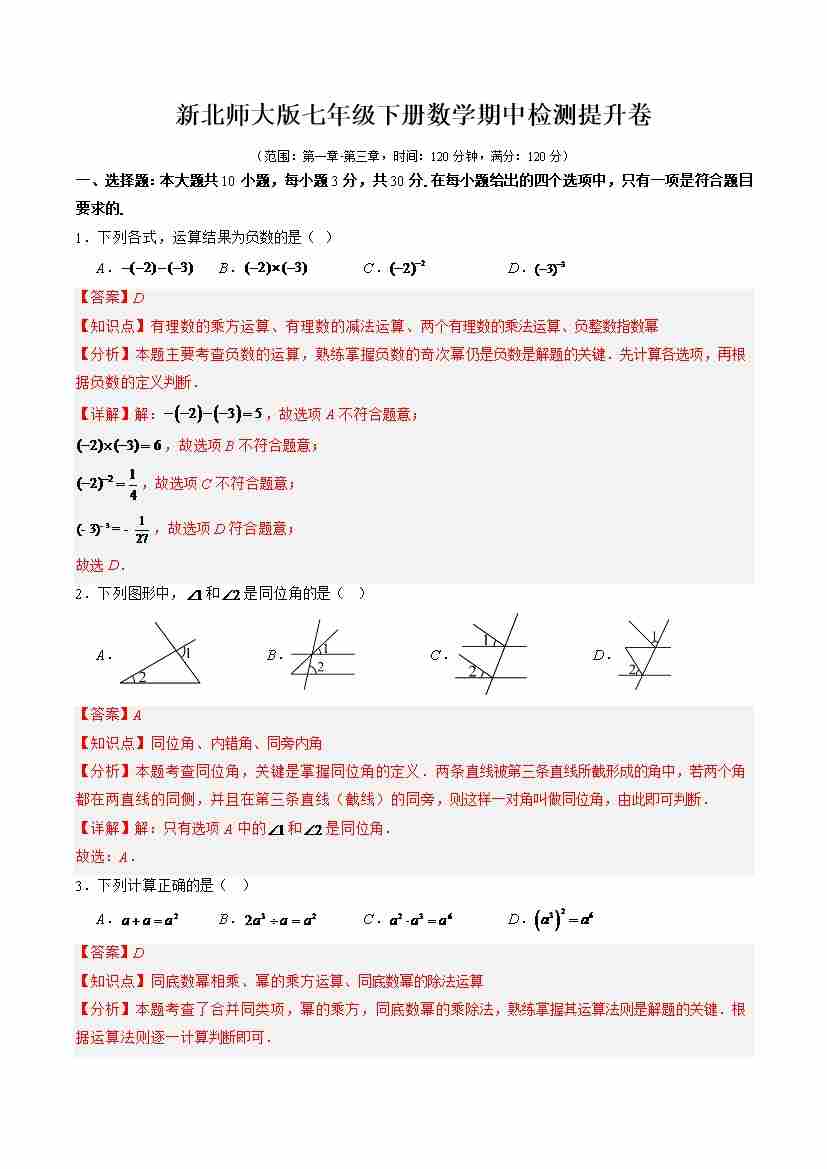 新北师大版七年级下册数学期中检测提升卷
（范围：第一章-第三章，时间：120分钟，满分：120分）
一、选择题：本大题共10小题，每小题3分，共30分.在每小题给出的四个选项中，只有一项是符合题目
要求的.
1．下列各式，运算结果为负数的是（ ）
A．−(−2)−(−3) B．(−2)×(−3) C．(−2)⁻² D．(−3)⁻³
【答案】D
【知识点】有理数的乘方运算、有理数的减法运算、两个有理数的乘法运算、负整数指数幂
【分析】本题主要考查负数的运算，熟练掌握负数的奇次幂仍是负数是解题的关键．先计算各选项，再根
据负数的定义判断．
【详解】解：−(−2)−(−3)=5，故选项A不符合题意；
(−2)×(−3)=6，故选项B不符合题意；
(−2)⁻²=1/4，故选项C不符合题意；
(-3)⁻³=-1/27，故选项D符合题意；
故选D．
2．下列图形中，∠1和∠2是同位角的是（ ）
A． 1 2 B． 1 2 C． 1 2 D． 1 2
【答案】A
【知识点】同位角、内错角、同旁内角
【分析】本题考查同位角，关键是掌握同位角的定义．两条直线被第三条直线所截形成的角中，若两个角
都在两直线的同侧，并且在第三条直线（截线）的同旁，则这样一对角叫做同位角，由此即可判断．
【详解】解：只有选项A中的∠1和∠2是同位角．
故选：A．
3．下列计算正确的是（ ）
A．a+a=a² B．2a³÷a=a² C．a²·a³=a⁶ D．(a³)²=a⁶
【答案】D
【知识点】同底数幂相乘、幂的乘方运算、同底数幂的除法运算
【分析】本题考查了合并同类项，幂的乘方，同底数幂的乘除法，熟练掌握其运算法则是解题的关键．根
据运算法则逐一计算判断即可．